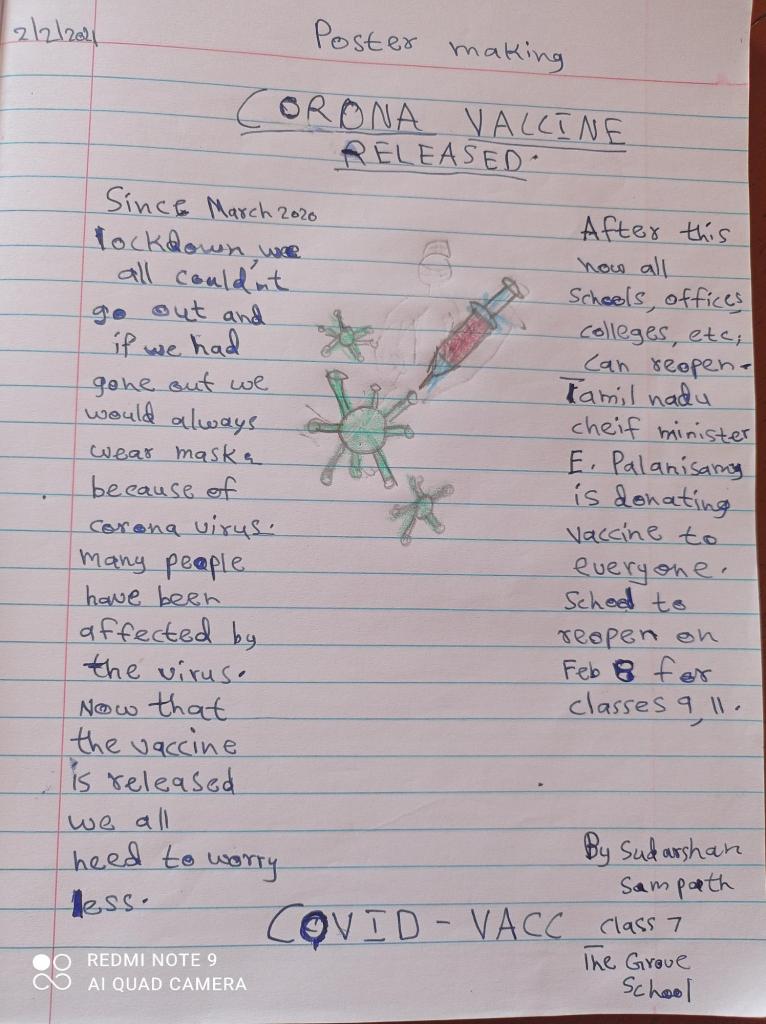 2/2/2021
Poster making
CORONA VACCINE
RELEASED.
Since March 2020
lockdown, we
all could'nt
go out and
if we had
gone out we
would always
wear masks
because of
corona virus.
Many people
have been
affected by
the virus.
Now that
the vaccine
is released
we all
need to worry
less.
After this
now all
Schools, offices
colleges, etc;
can reopen.
Tamil nadu
cheif minister
E. Palanisamy
is donating
vaccine to
everyone.
School to
reopen on
Feb 8 for
classes 9, 11.
By Sudarshan
Sampath
class 7
The Grove
School
COVID-VACC
REDMI NOTE 9
AI QUAD CAMERA